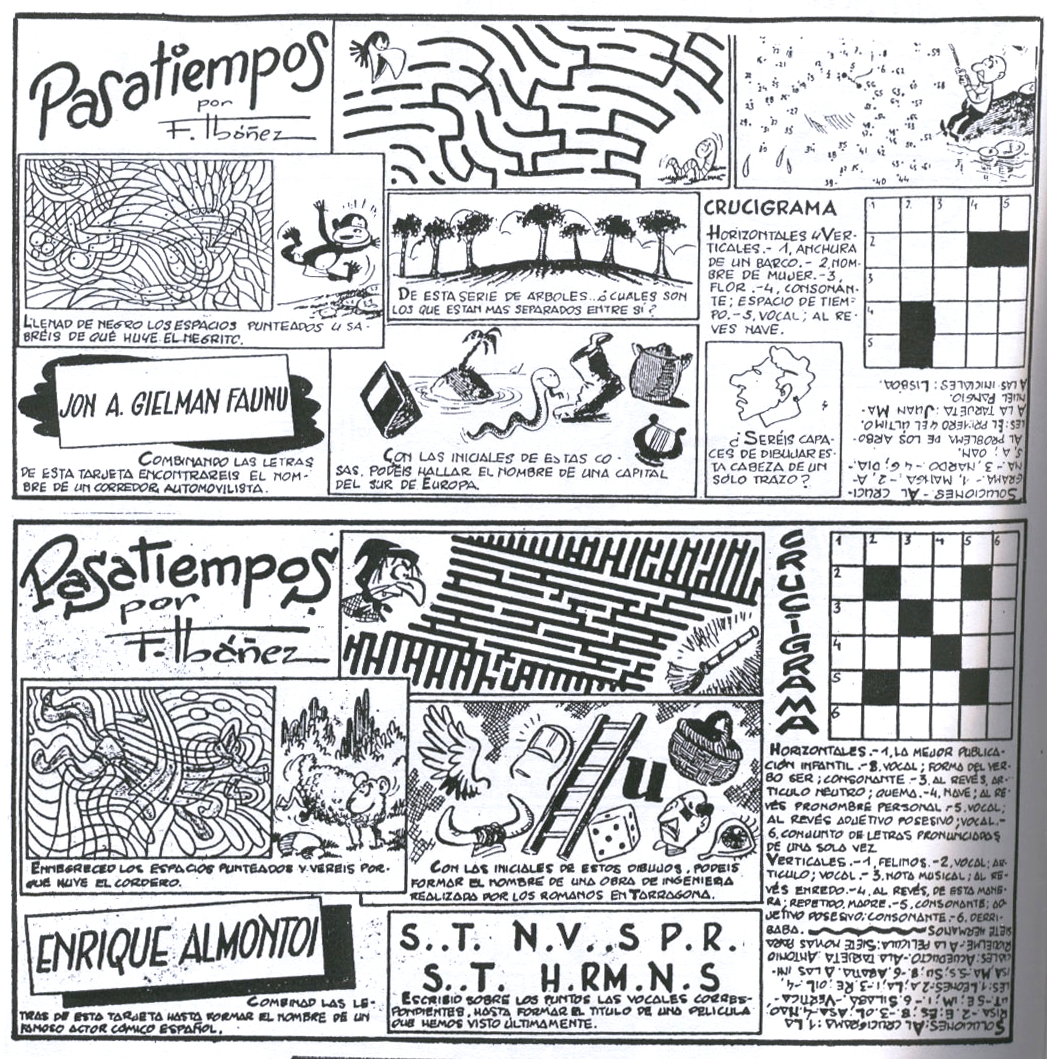 Pasatiempos
por
F. Ibáñez
LLENAD DE NEGRO LOS ESPACIOS PUNTEADOS Y SA-
BRÉIS DE QUÉ HUYE EL NEGRITO.
DE ESTA SERIE DE ÁRBOLES... ¿CUALES SON
LOS QUE ESTAN MAS SEPARADOS ENTRE SÍ?
CRUCIGRAMA
HORIZONTALES Y VER-
TICALES.- 1, ANCHURA
DE UN BARCO.- 2, NOM-
BRE DE MUJER.- 3,
FLOR.- 4, CONSONAN-
TE; ESPACIO DE TIEM-
PO.- 5, VOCAL; AL RE-
VÉS NAVE.
1 2 3 4 5
2
3
4
5
JON A. GIELMAN FAUNU
COMBINANDO LAS LETRAS
DE ESTA TARJETA ENCONTRAREIS EL NOM-
BRE DE UN CORREDOR AUTOMOVILISTA.
CON LAS INICIALES DE ESTAS CO-
SAS, PODÉIS HALLAR EL NOMBRE DE UNA CAPITAL
DEL SUR DE EUROPA.
¿SERÉIS CAPA-
CES DE DIBUJAR ES-
TA CABEZA DE UN
SOLO TRAZO?
SOLUCIONES.- AL CRUCI-
GRAMA.- 1, MANGA.- 2, A-
NA.- 3, NARDO.- 4, G; DIA.-
5, A; OAN.
AL PROBLEMA DE LOS ARBO-
LES: EL PRIMERO Y EL ÚLTIMO.
A LA TARJETA: JUAN MA-
NUEL FANGIO.
A LAS INICIALES: LISBOA.
Pasatiempos
por
F. Ibáñez
ENNEGRECED LOS ESPACIOS PUNTEADOS Y VEREIS POR-
QUÉ HUYE EL CORDERO.
u
CON LAS INICIALES DE ESTOS DIBUJOS, PODEIS
FORMAR EL NOMBRE DE UNA OBRA DE INGENIERIA
REALIZADA POR LOS ROMANOS EN TARRAGONA.
CRUCIGRAMA
1 2 3 4 5 6
2
3
4
5
6
HORIZONTALES.- 1, LA MEJOR PUBLICA-
CIÓN INFANTIL.- 2, VOCAL; FORMA DEL VER-
BO SER; CONSONANTE.- 3, AL REVÉS, AR-
TICULO NEUTRO; QUEMA.- 4, NAVE; AL RE-
VÉS PRONOMBRE PERSONAL.- 5, VOCAL;
AL REVÉS ADJETIVO POSESIVO; VOCAL.-
6, CONJUNTO DE LETRAS PRONUNCIADAS
DE UNA SOLA VEZ
VERTICALES.- 1, FELINOS.- 2, VOCAL; AR-
TICULO; VOCAL.- 3, NOTA MUSICAL; AL RE-
VÉS ENREDO.- 4, AL REVÉS, DE ESTA MANE-
RA; REPETIDO, MADRE.- 5, CONSONANTE; AD-
JETIVO POSESIVO; CONSONANTE.- 6, DERRI-
BABA.
ENRIQUE ALMONTOI
COMBINAD LAS LE-
TRAS DE ESTA TARJETA HASTA FORMAR EL NOMBRE DE UN
FAMOSO ACTOR CÓMICO ESPAÑOL.
S..T. N.V..S P.R.
S..T. H.RM.N.S
ESCRIBID SOBRE LOS PUNTOS LAS VOCALES CORRES-
PONDIENTES, HASTA FORMAR EL TITULO DE UNA PELICULA
QUE HEMOS VISTO ÚLTIMAMENTE.
SOLUCIONES: AL CRUCIGRAMA: 1, LA
RISA
CIALES: ACUEDUCTO.- A LA TARJETA: ANTONIO
RIQUELME.- A LA PELÍCULA: SIETE NOVIAS PARA
SIETE HERMANOS